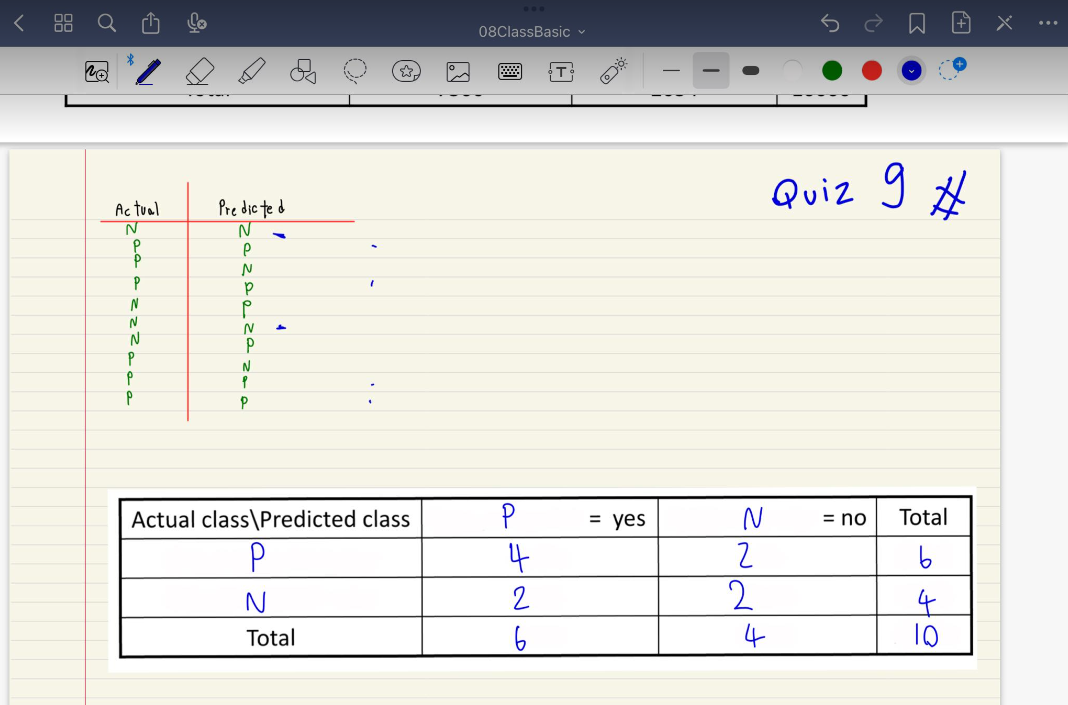 08ClassBasic
T
Quiz 9 #
Actual Predicted
N N
P P
P N
P P
N P
N N
N P
P N
P P
P P
Actual class\Predicted class P = yes N = no Total
P 4 2 6
N 2 2 4
Total 6 4 10